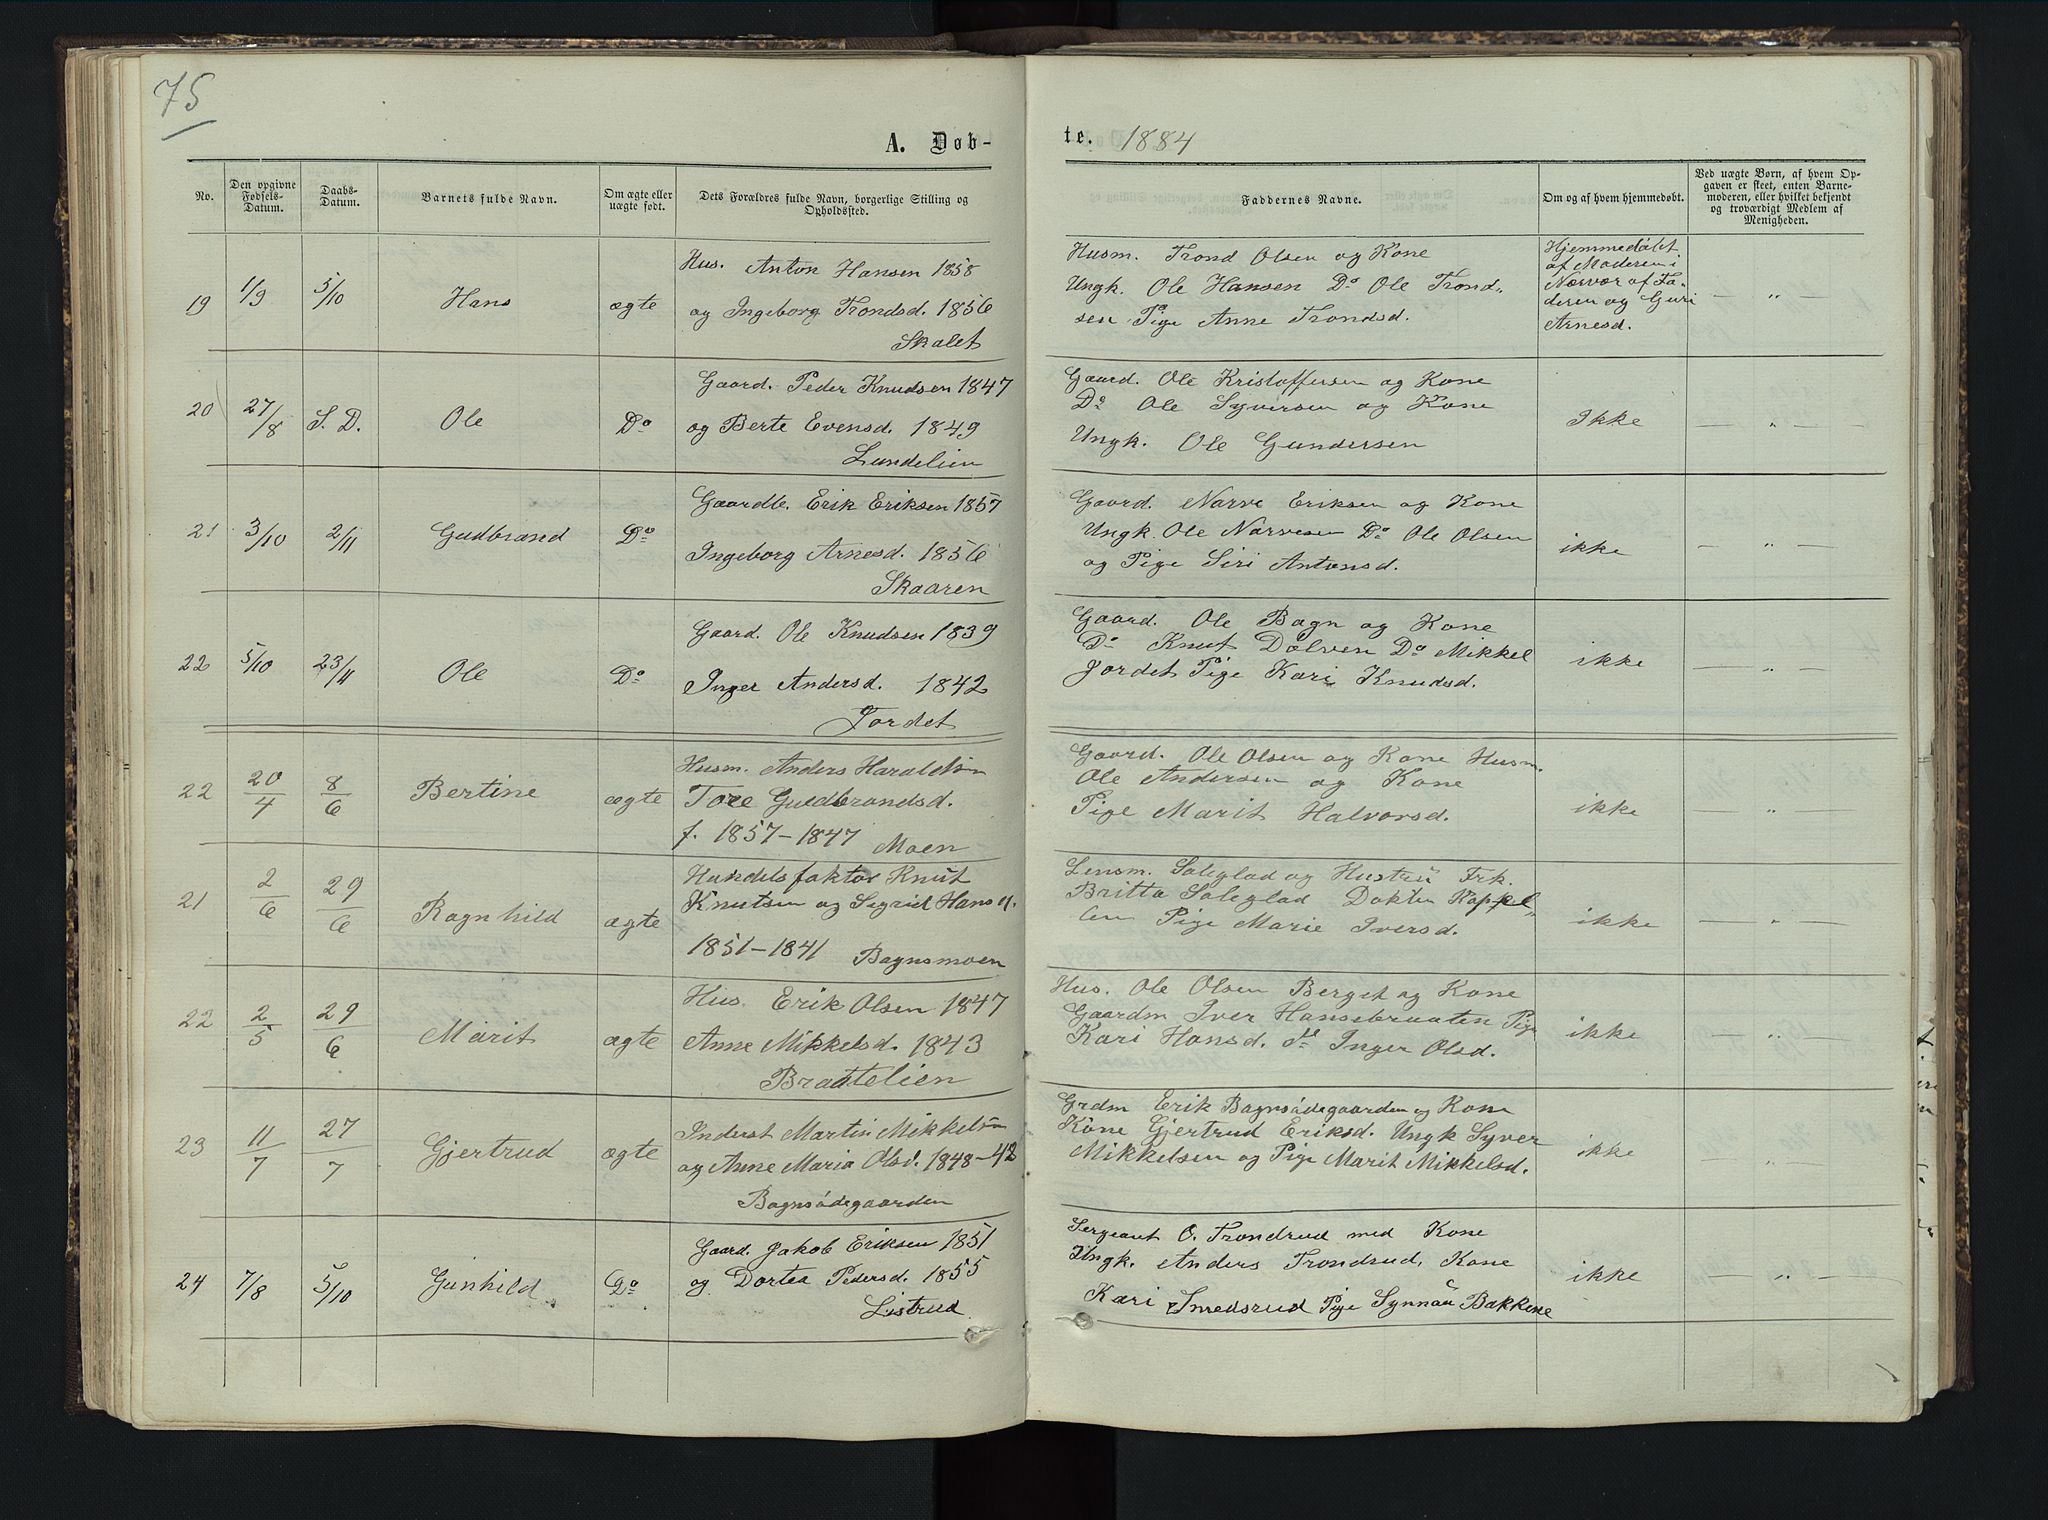 75
A. Døbte. 1884
No.
Den opgivne Fødsels-Datum.
Daabs-Datum.
Barnets fulde Navn.
Om ægte eller uægte født.
Dets Forældres fulde Navn, borgerlige Stilling og Opholdssted.
Faddernes Navne.
Om og af hvem hjemmedøbt.
Ved uægte Børn, af hvem Opgaven er skeet, enten Barnemoderen, eller hvilket bekjendt og troværdigt Medlem af Menigheden.
19 1/9 5/10 Hans ægte
Hus. Anton Hansen 1858
og Ingeborg Trondsd. 1856
Skalet
Husm. Trond Olsen og Kone
Ungk. Ole Hansen Do Ole Trond-
sen Pige Anne Trondsd.
Hjemmedøbt
af Moderen i
Nærvær af Fa-
deren og Guri
Arnesd.
— „ —
20 27/8 S. D. Ole Do
Gaard. Peder Knudsen 1847
og Berte Evensd. 1849
Lundelien
Gaard. Ole Kristoffersen og Kone
Do Ole Syversen og Kone
Ungk. Ole Gundersen
Ikke
— „ —
21 3/10 2/11 Gudbrand Do
Gaardbr. Erik Eriksen 1857
Ingeborg Arnesd. 1856
Skaaren
Gaard. Narve Eriksen og Kone
Ungk. Ole Narvesen Do Ole Olsen
og Pige Siri Antonsd.
ikke
— „ —
22 5/10 23/11 Ole Do
Gaard. Ole Knudsen 1839
Inger Andersd. 1842
Jordet
Gaard. Ole Bagn og Kone
Do Knut Dølven Do Mikkel
Jordet Pige Kari Knudsd.
ikke
— „ —
22 20/4 8/6 Bertine ægte
Husm. Anders Haraldsen
Tore Guldbrandsd.
f. 1857–1847 Moen
Gaard. Ole Olsen og Kone Husm.
Ole Andersen og Kone
Pige Marit Halvorsd.
ikke
— „ —
21 2/6 29/6 Ragnhild ægte
Handelsfaktor Knut
Knutsen og Sigrid Hansd.
1851–1841 Bagnsmoen
Lensm. Saleglad og Hustru Frk.
Britta Saleglad Doktor Kappel-
len Pige Marie Iversd.
ikke
— „ —
22 2/5 29/6 Marit ægte
Hus. Erik Olsen 1847
Anne Mikkelsd. 1843
Braatelien
Hus. Ole Olsen Berget og Kone
Gaardm Iver Hansebraaten Pige
Kari Hansd. do Inger Olsd.
ikke
— „ —
23 11/7 27/7 Gjertrud ægte
Inderst Martin Mikkelsen
og Anne Maria Olsd. 1848–42
Bagnsådegaarden
Grdm Erik Bagnsådegaarden og Kone
Kone Gjertrud Eriksd. Ungk Syver
Mikkelsen og Pige Marit Mikkelsd.
ikke
— „ —
24 7/8 5/10 Gunhild Do
Gaard. Jakob Eriksen 1851
og Dortea Pedersd. 1855
Listrud
Sergeant O. Trondrud med Kone
Ungk. Anders Trondrud, Kone
Kari Smedsrud Pige Synnau Bakkene
ikke
— „ —